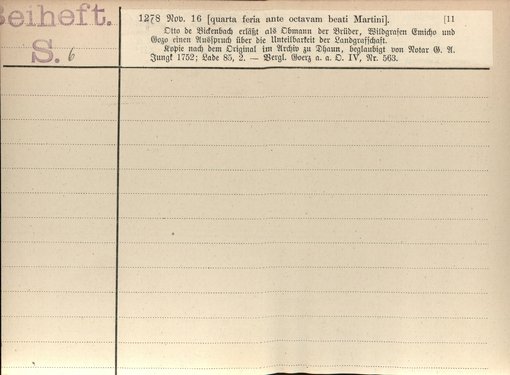 Beiheft.
S. 6
1278 Nov. 16 [quarta feria ante octavam beati Martini]. [11
Otto de Bickenbach erläßt als Obmann der Brüder, Wildgrafen Emicho und
Gozo einen Ausspruch über die Unteilbarkeit der Landgrafschaft.
Kopie nach dem Original im Archiv zu Dhaun, beglaubigt von Notar G. A.
Jungk 1752; Lade 85, 2. — Vergl. Goerz a. a. O. IV, Nr. 563.